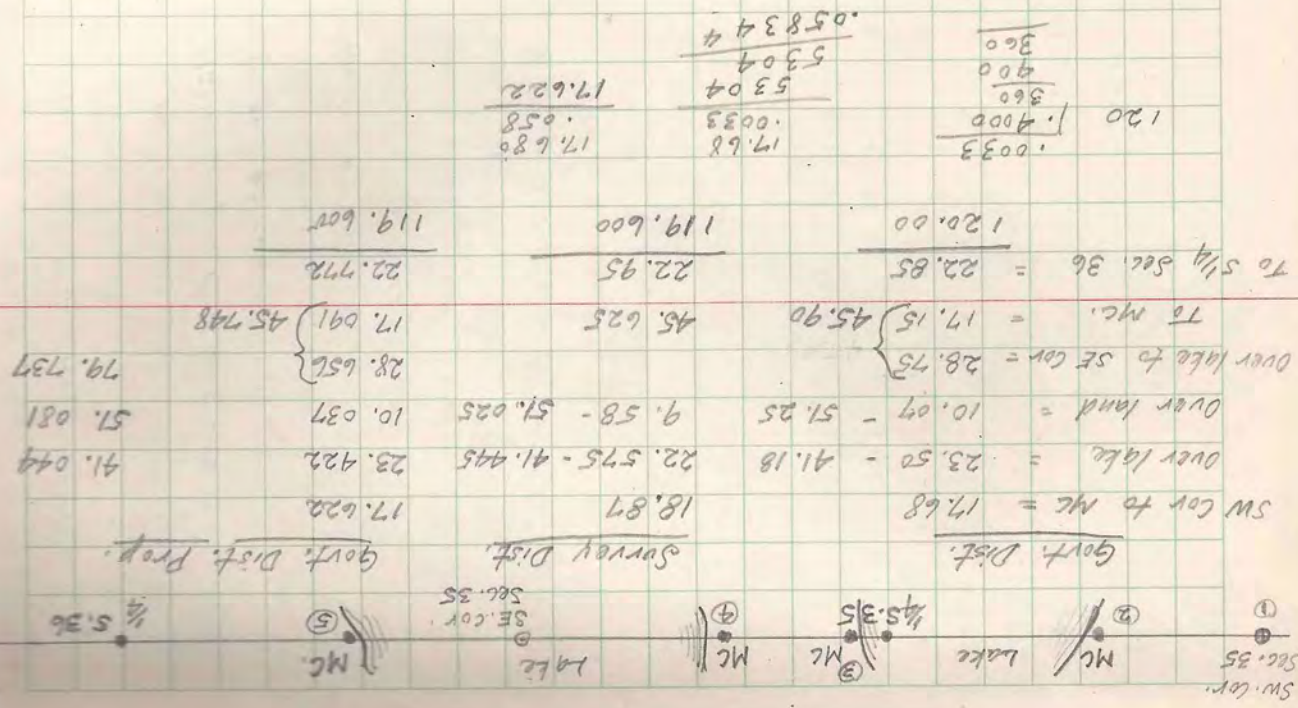 SW. Cor.
Sec. 35
①
MC
②
Lake
1/4 S. 35
MC
③
MC
④
Lake
SE. Cor.
Sec. 35
MC.
⑤
1/4
S. 36
Govt. Dist. Survey Dist. Govt. Dist. Prop.
SW Cor to MC = 17.68 18.87 17.622
Over lake = 23.50 - 41.18 22.575 - 41.445 23.422 41.044
Over land = 10.07 - 51.25 9.58 - 51.025 10.037 51.081
Over lake to SE Cor = 28.75 28.656 79.737
To MC. = 17.15 } 45.90 45.625 17.091 } 45.748
To S 1/4 Sec. 36 = 22.85 22.95 22.772
120.00 119.600 119.600
.0033 17.68 17.680
120 .4000 .0033 .058
360 5304 17.622
400 5304
360 .058344